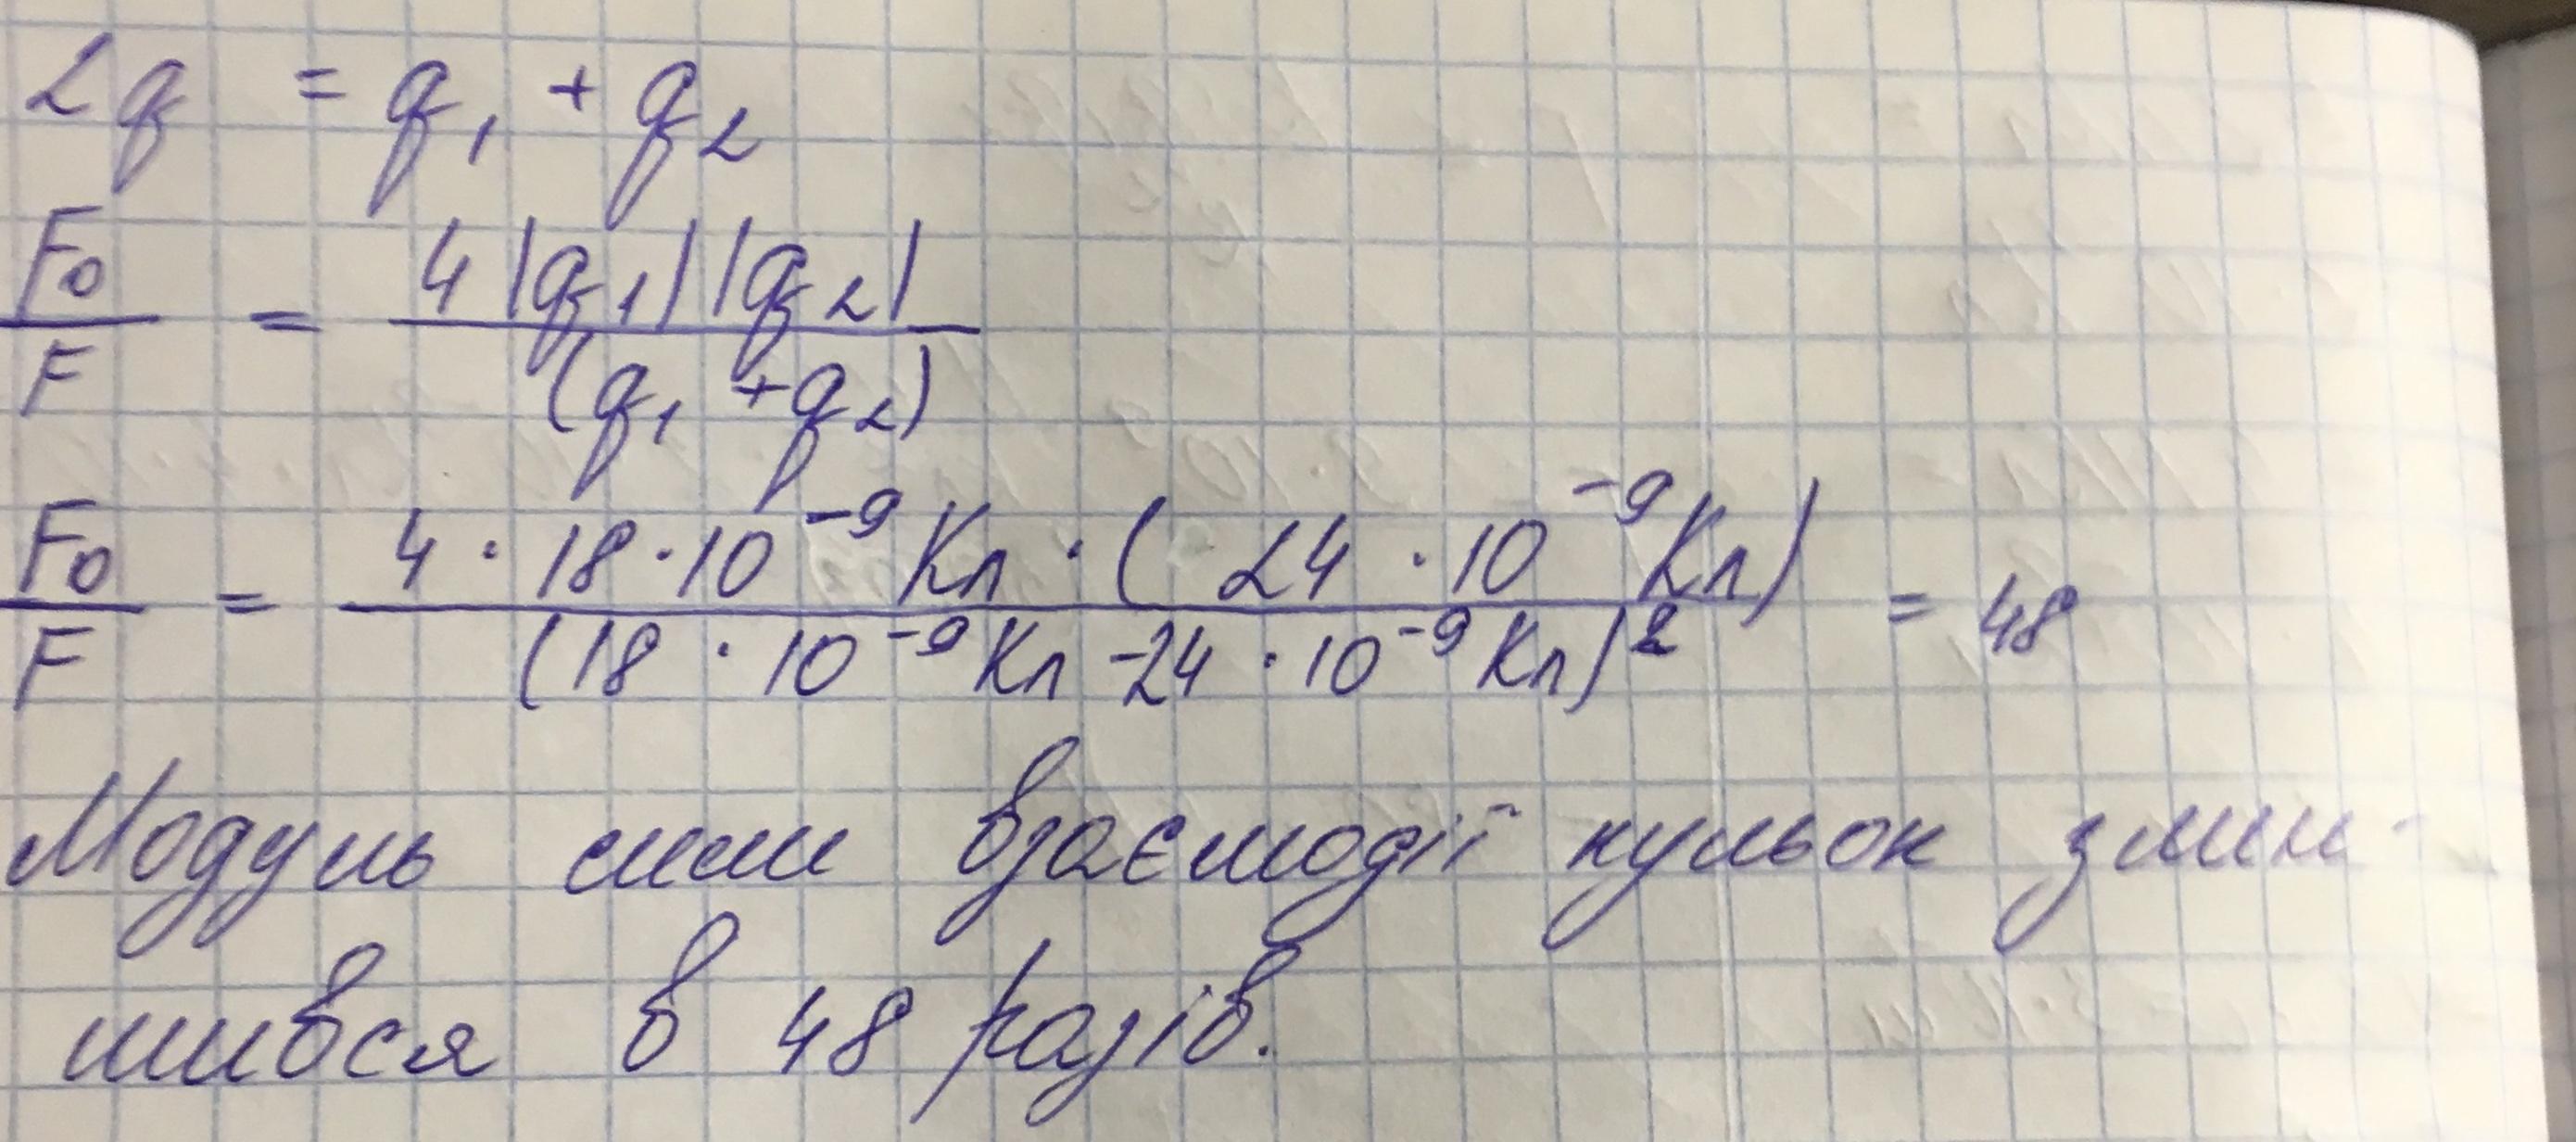 2q = q₁ + q₂
F₀/F = 4|q₁||q₂|/(q₁ + q₂)
F₀/F = 4 · 18 · 10⁻⁹ Кл · (24 · 10⁻⁹ Кл)/(18 · 10⁻⁹ Кл - 24 · 10⁻⁹ Кл)² = 48
Модуль сили взаємодії кульок змен-
шився в 48 разів.